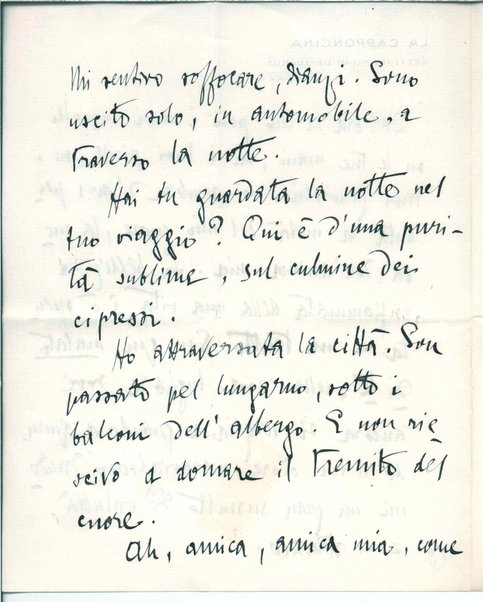 Mi sentivo soffocare, dianzi. Sono
uscito solo, in automobile, a
traverso la notte.
Hai tu guardata la notte nel
tuo viaggio? Qui è d'una puri-
tà sublime, sul culmine dei
cipressi.
Ho attraversata la città. Son
passato pel lungarno, sotto i
balconi dell'albergo. E non rie
scivo a domare il tremito del
cuore.
Ah, amica, amica mia, come